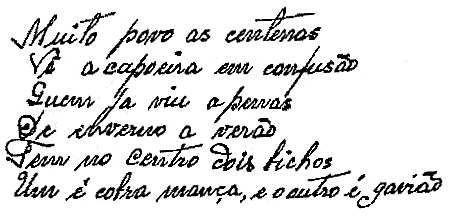 Muito povo as centenas
Vê a capoeira em confusão
Quem ja viu apenas
De enverno a verão
Tem no centro dois bichos
Um é cobra mança, e o outro é gavião